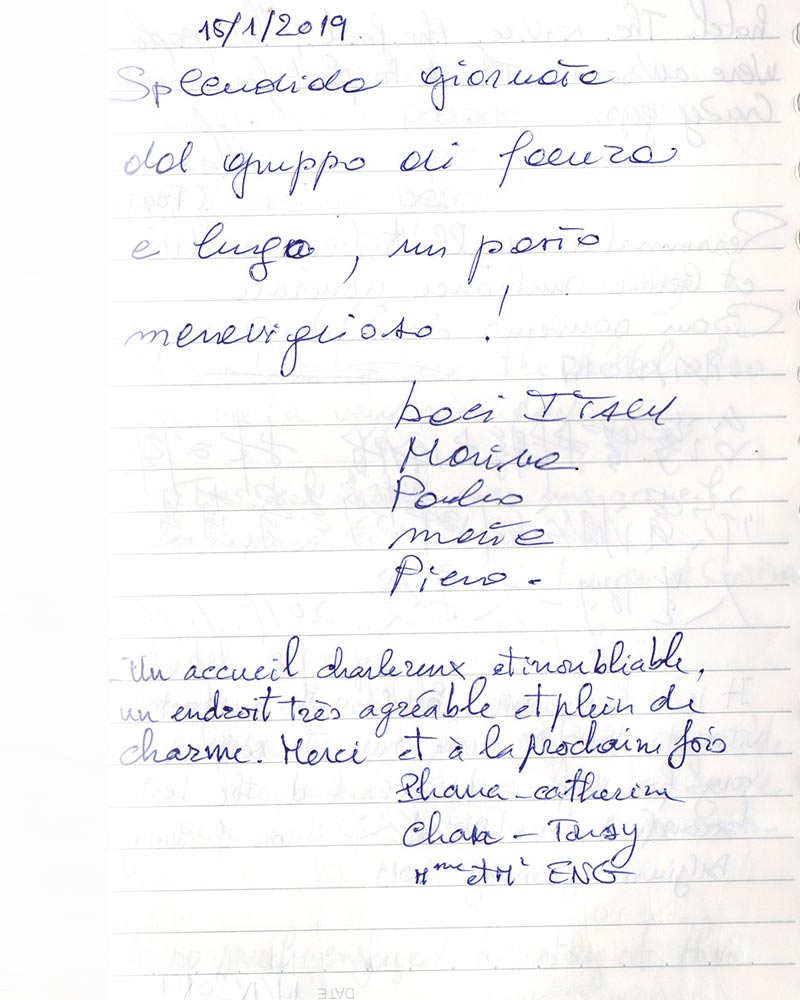 15/1/2019
Splendida giornata
dal gruppo di faenza
e lugo, un posto
meraviglioso!
baci ITALY
Marina
Paolo
Piero.
Un accueil chaleureux et inoubliable,
un endroit très agréable et plein de
charme. Merci et à la prochaine fois
Phana-catherine
Mme et Mr ENG
DATE